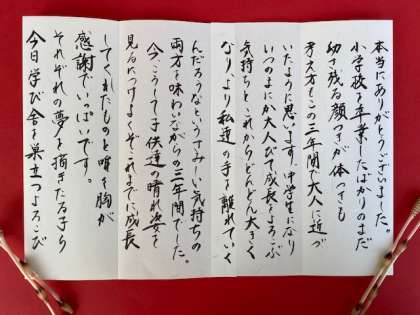 本当にありがとうございました。
小学校を卒業したばかりのまだ
幼さ残る顔つきが体つきも
考え方もこの三年間で大人に近づ
いたように思います。中学生になり
いつのまにか大人びて成長をよろこぶ
気持ちとこれからどんどん大きく
なり、より私達の手を離れていく
んだろうなと、うさみしい気持ちの
両方を味わいながらの三年間でした。
今、こうして子供達の晴れ姿を
見るにつけ、よくぞこれまでに成長
してくれたものと唯々胸が
感謝でいっぱいです。
それぞれの夢を描きたる子ら
今日学び舎を巣立つよろこび